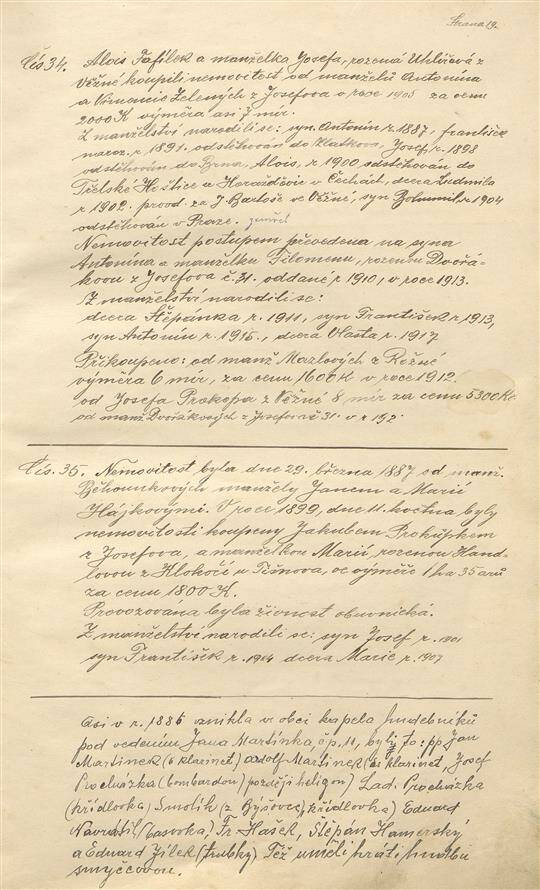 Strana 19.
Čís 34. Alois Fafílek a manželka Josefa, rozená Uhlířová z
Věžné koupili nemovitost od manželů Antonína
a Vincencie Zelených z Josefova v roce 1905 za cenu
2000 K výměra asi 7 mír.
Z manželství narodili se: syn Antonín r. 1887, František
naroz. r 1891. odstěhován do Zlatkova, Josef, r. 1898
odstěhován do Brna, Alois, r. 1900, odstěhován do
Hoštice a Horažďovic v Čechách, dcera Ludmila
r 1902. provd. za J Bartoše ve Věžné, syn Bohumil r. 1904
odstěhován v Praze. zemřel
Nemovitost postupem převedena na syna
Antonína a manželku Filomenu, rozenu Dvořá-
kovu z Josefova č. 31. oddané r 1910, v roce 1913.
Z manželství narodili se:
dcera Štěpánka r. 1911, syn František r 1913,
syn Antonín r. 1915., dcera Vlasta r. 1917
Přikoupeno: od manž Mazlových z Rožné
výměra 6 mír, za cenu 1600 K v roce 1912.
od Josefa Prokopa z Věžné 8 mír za cenu 5300 Kč
od manž Dvořákových z Josefova č 31. v r 192
Čís. 35. Nemovitost byla dne 29. března 1887 od manž.
Běhounkových manžely Janem a Marií
Hájkovými. V roce 1899, dne 11. května byly
nemovitosti koupeny Jakubem Prokůpkem
z Josefova, a manželkou Marií, rozenou Hand-
lovou z Hlokočí u Tišnova, ve výměře 1 ha 35 arů
za cenu 1800 K.
Provozována byla živnost obuvnická.
Z manželství narodili se: syn Josef r. 1901
syn František r. 1904 dcera Marie r. 1907
Asi v r. 1885 vznikla v obci kapela hudebníků
pod vedením Jana Martínka, čp. 11, byly to: pp Jan
Martinek (B klarinet) Adolf Martinek (Es klarinet, Josef
Procházka (bombardon) později heligon) Lad. Procházka
(křídlovka) Smolík (z Býšovce, křídlovka) Eduard
Navrátil (basovka,) Fr. Hašek, Štěpán Hamerský
a Eduard Jílek (trubky) Též uměli hráti hudbu
smyčcovou.